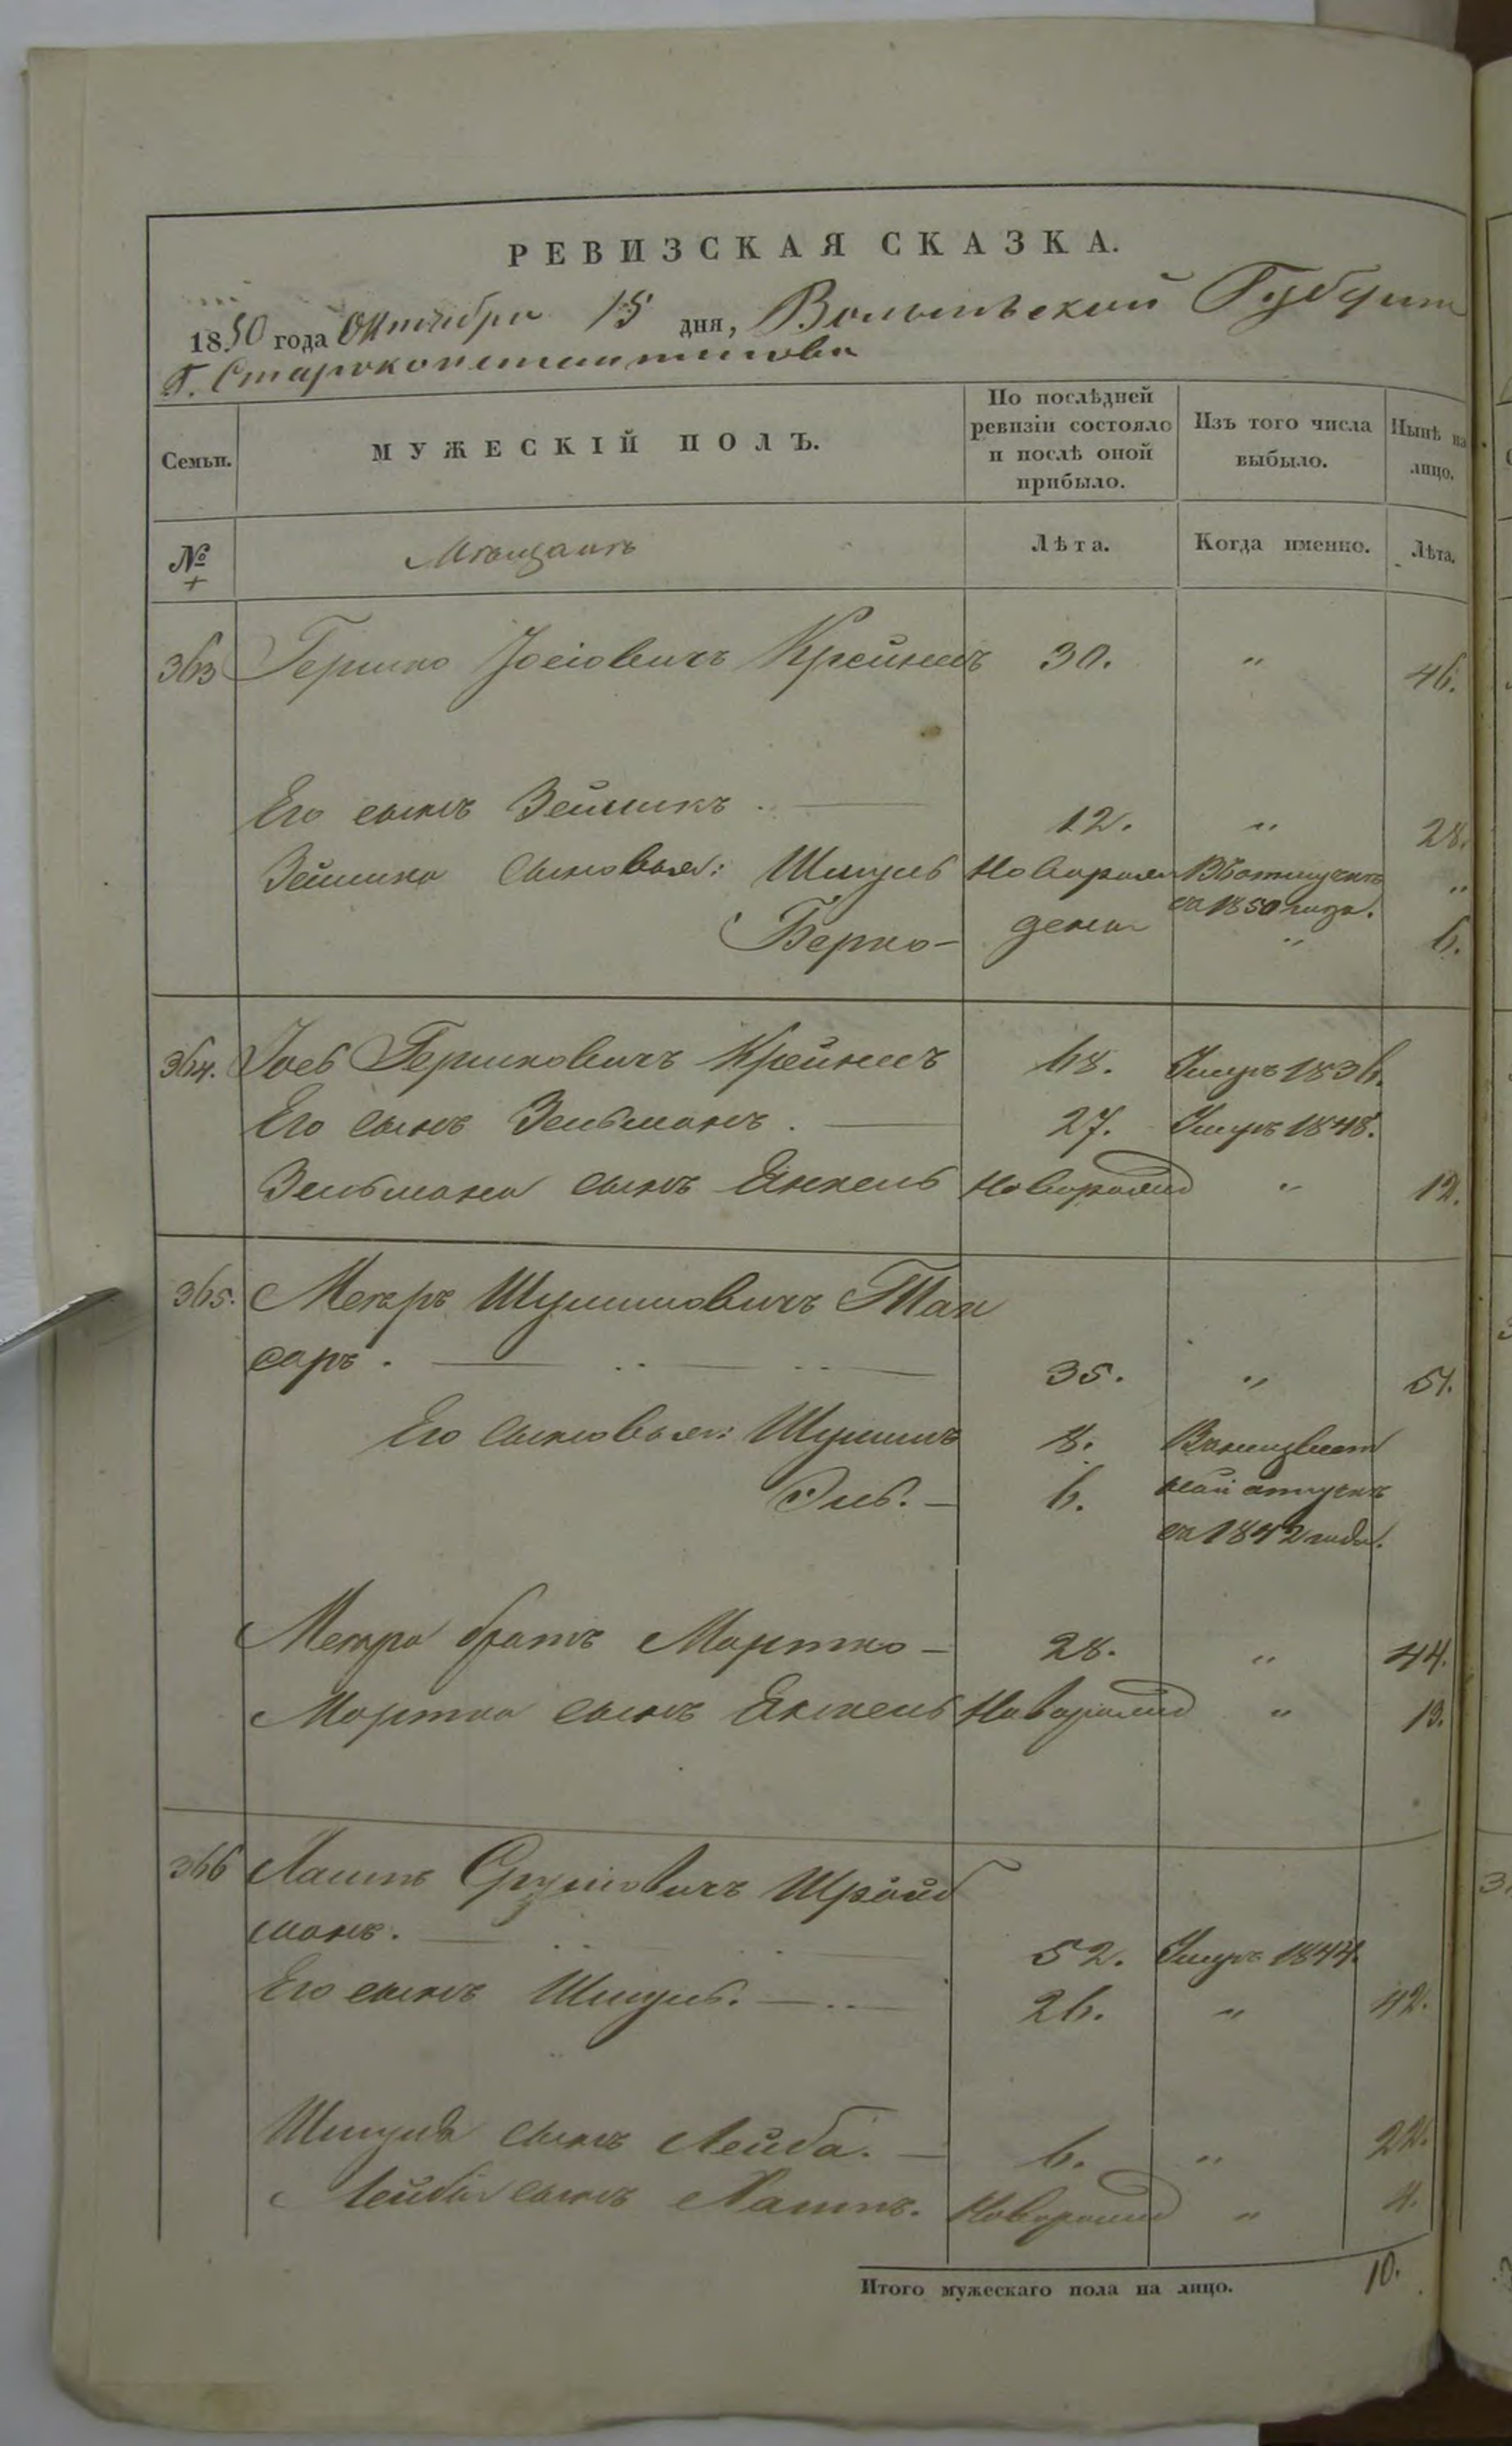 РЕВИЗСКАЯ СКАЗКА.
1850 года Октября 15 дня, Волынской Губернии
Г. Староконстантинова
Семьи. МУЖЕСКІЙ ПОЛЪ. По послѣдней ревизіи состояло и послѣ оной прибыло. Изъ того числа выбыло. Нынѣ на лицо.
№ Мѣщанъ Лѣта. Когда именно. Лѣта.
363 Гершко Іосіовичъ Крейнесъ 30. " 46.
Его сынъ Зейликъ . 12. " 28.
Зейлика сыновья: Шмуль Новорож Въ отлучкѣ "
съ 1850 года.
Берко - дены " 6.
364. Іось Гершковичъ Крейнесъ 68. Умеръ 1836.
Его сынъ Зельманъ . 27. Умеръ 1848.
Зельмана сынъ Янкель Новорожд " 12.
365. Мееръ Шулимовичъ Так
саръ . 35. " 51.
Его сыновья: Шулимъ 8. Внеизвѣст
Эль. - 6. ной отлучкѣ
съ 1842 года.
Меера братъ Мортко - 28. " 44.
Мортка сынъ Янкель Новорожд " 13.
366 Хаимъ Сруліовичъ Шрайб
манъ. 52. Умеръ 1844.
Его сынъ Шмуль. 26. " 42.
Шмуля сынъ Лейба. - 6. " 22.
Лейбы сынъ Хаимъ. Новорожд " 4.
Итого мужескаго пола на лицо. 10.